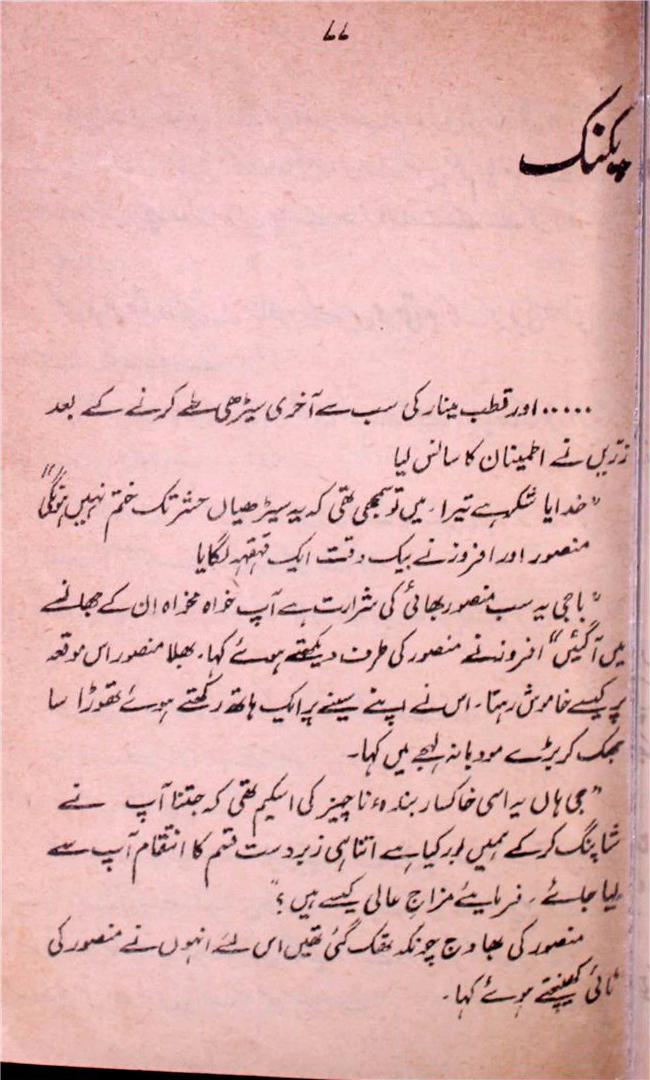 ۷۷
پکنک
..... اور قطب مینار کی سب سے آخری سیڑھی طے کرنے کے بعد
زرّیں نے اطمینان کا سانس لیا
"خدایا شکر ہے تیرا۔ میں تو سمجھی تھی کہ یہ سیڑھیاں حشر تک ختم نہیں ہونگی"
منصور اور افروز نے بیک وقت ایک قہقہہ لگایا
"باجی یہ سب منصور بھائی کی شرارت ہے آپ خواہ مخواہ ان کے جھانسے
میں آگئیں" افروز نے منصور کی طرف دیکھتے ہوئے کہا۔ بھلا منصور اس موقعہ
پر کیسے خاموش رہتا۔ اس نے اپنے سینے پر ایک ہاتھ رکھتے ہوئے تھوڑا سا
جھک کر بڑے مودبانہ لہجے میں کہا۔
"جی ہاں یہ اسی خاکسار بندہء ناچیز کی اسکیم تھی کہ جتنا آپ نے
شاپنگ کرکے ہمیں بور کیا ہے اتنا ہی زبردست قسم کا انتقام آپ سے
لیا جائے۔ فرمایئے مزاجِ عالی کیسے ہیں؟"
منصور کی بھاوج چونکہ تھک گئی تھیں اس لئے انہوں نے منصور کی
ٹائی کھینچتے ہوئے کہا۔